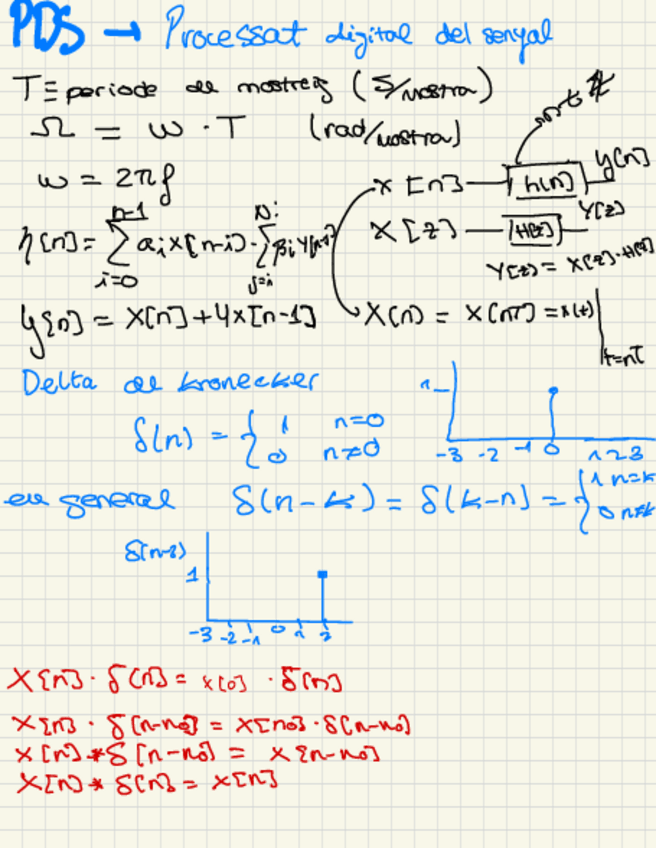 PDS → Processat digital del senyal
T ≡ periode de mostreig (s/mostra)
Ω = ω · T (rad/mostra)
ω = 2πf
x[n] — h[n] — y[n]
X[z] — H[z] — Y[z]
Y[z] = X[z]·H[z]
y[n] = x[n] + 4x[n-1]
x(n) = x(nT) = x(t)|t=nT
Delta de kronecker
1
δ(n) = { 1 n=0
0 n≠0
-3 -2 -1 0 1 2 3
en general δ(n-k) = δ(k-n) = { 1 n=k
0 n≠k
δ(n-2)
1
-3 -2 -1 0 1 2
x[n] · δ[n] = x[0] · δ[n]
x[n] · δ[n-n₀] = x[n₀] · δ[n-n₀]
x[n] * δ[n-n₀] = x[n-n₀]
x[n] * δ[n] = x[n]